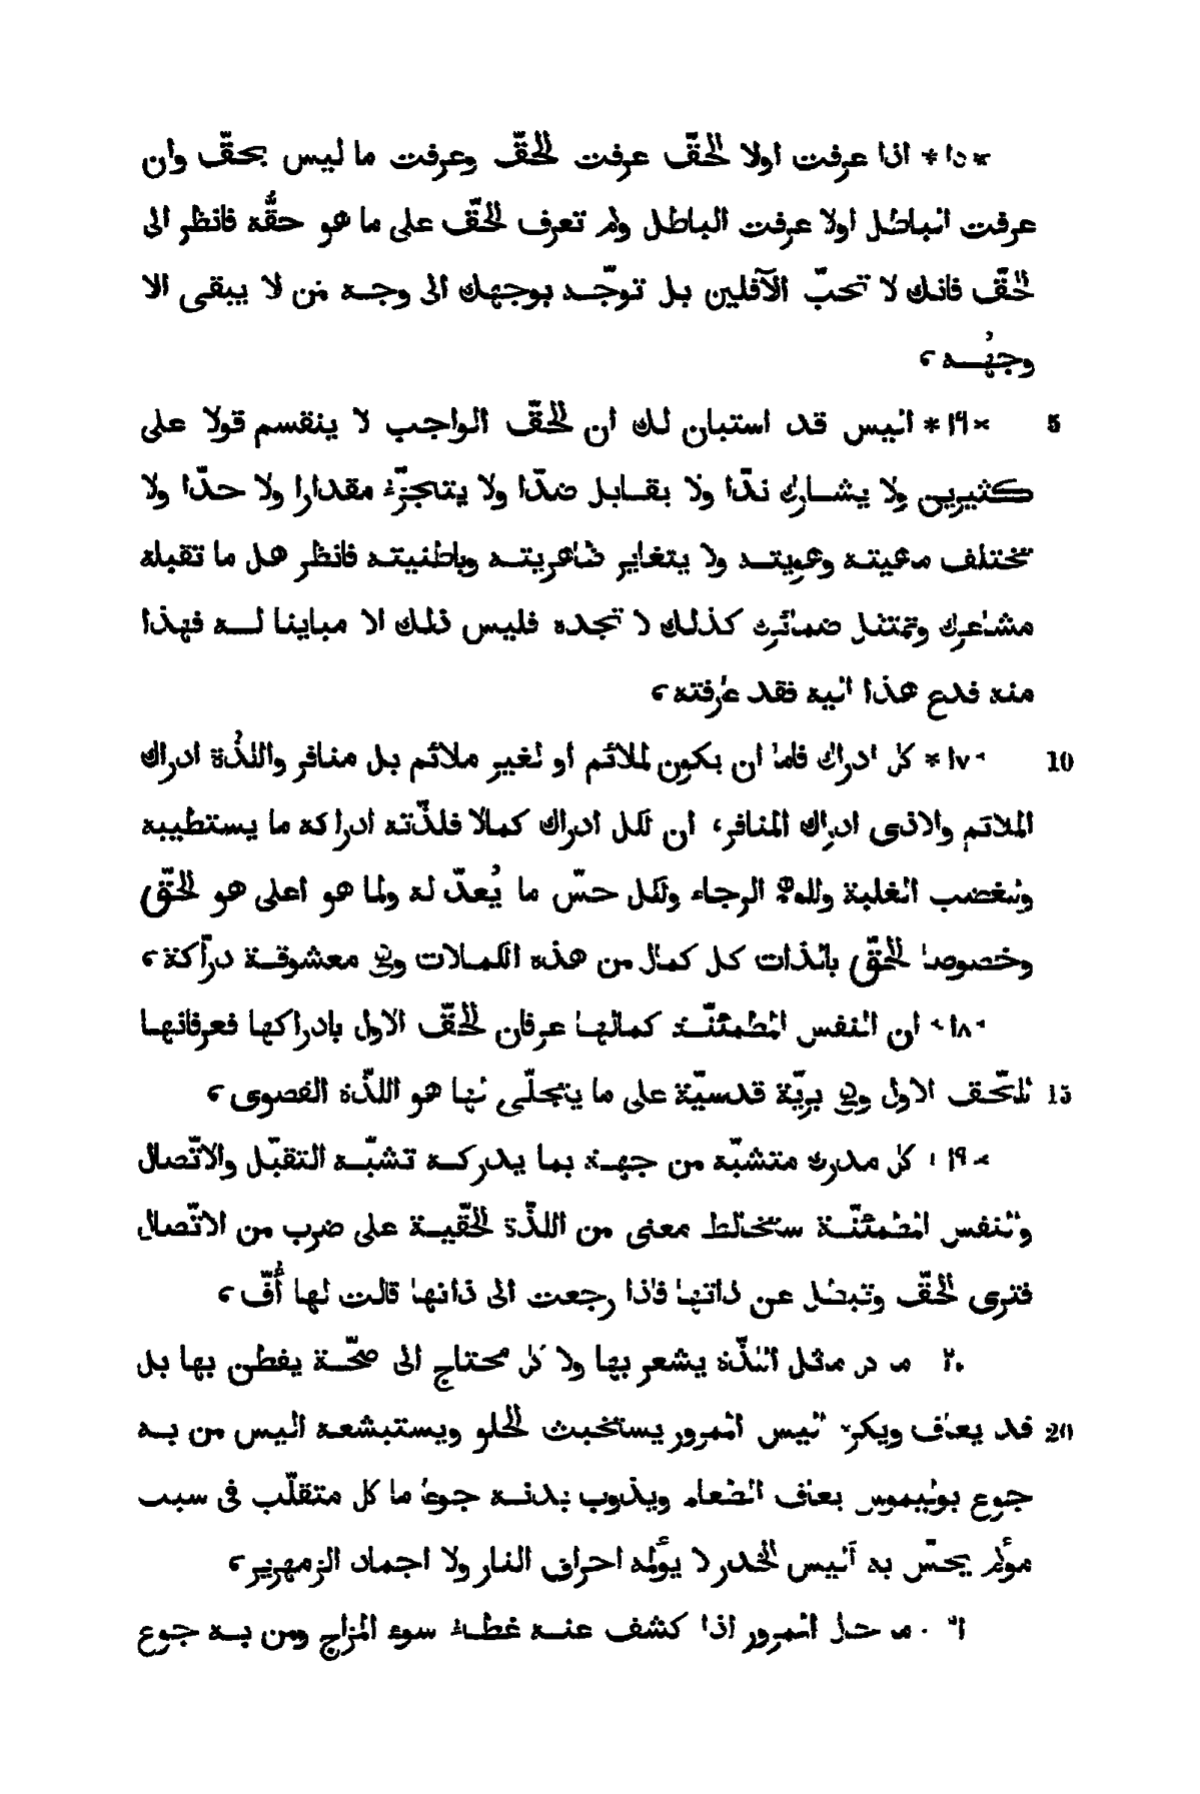 * ١٥ * اذا عرفت اولا الحقّ عرفت الحقّ وعرفت ما ليس بحقّ وان
عرفت الباطل اولا عرفت الباطل ولم تعرف الحقّ على ما هو حقُّه فانظر الى
الحقّ فانك لا تحبّ الآفلين بل توجّه بوجهك الى وجه من لا يبقى الا
وجهُه،
5 * ١٦ * اليس قد استبان لك ان الحقّ الواجب لا ينقسم قولا على
كثيرين ولا يشارك ندّا ولا يقابل ضدّا ولا يتجزّء مقدارا ولا حدّا ولا
تختلف مهيته وهويته ولا يتغاير ظاهريته وباطنيته فانظر هل ما تقبله
مشاعرك وتمتثل ضمائرك كذلك لا تجده فليس ذلك الا مباينا له فهذا
منه فدع هذا اليه فقد عرفته،
10 * ١٧ * كل ادراك فاما ان يكون لملائم او لغير ملائم بل منافر واللذة ادراك
الملائم والاذى ادراك المنافر، ان لكل ادراك كمالا فلذّته ادراكه ما يستطيبه
وللغضب الغلبة وللوهم الرجاء ولكل حسّ ما يُعدّ له ولما هو اعلى هو الحقّ
وخصوصا الحقّ بالذات كل كمال من هذه الكمالات وهى معشوقة درّاكة،
* ١٨ * ان النفس المطمئنّة كمالها عرفان الحقّ الاول بادراكها فعرفانها
15 للحّق الاول وهى بريّة قدسيّة على ما يتجلّى لها هو اللذّة القصوى،
* ١٩ * كل مدرك متشبّه من جهة بما يدركه تشبّه التقبّل والاتّصال
والنفس المطمئنّة ستخالط معنى من اللذّة الحقّية على ضرب من الاتّصال
فترى الحقّ وتبطل عن ذاتها فاذا رجعت الى ذاتها قالت لها أُفّ،
٢٠ ما كل مثل اللذّة يشعر بها ولا كل محتاج الى صحّة يفطن بها بل
20 قد يعاف ويكره اليس الممرور يستخبث الحلو ويستبشعه اليس من به
جوع بوليموس يعاف الطعام ويذوب بدنه جوعا ما كل متقلّب فى سبب
مؤلم يحسّ به أليس الخدر لا يؤلمه احراق النار ولا اجماد الزمهرير،
٢١ ما حال الممرور اذا كشف عنه غطاء سوء المزاج ومن به جوع